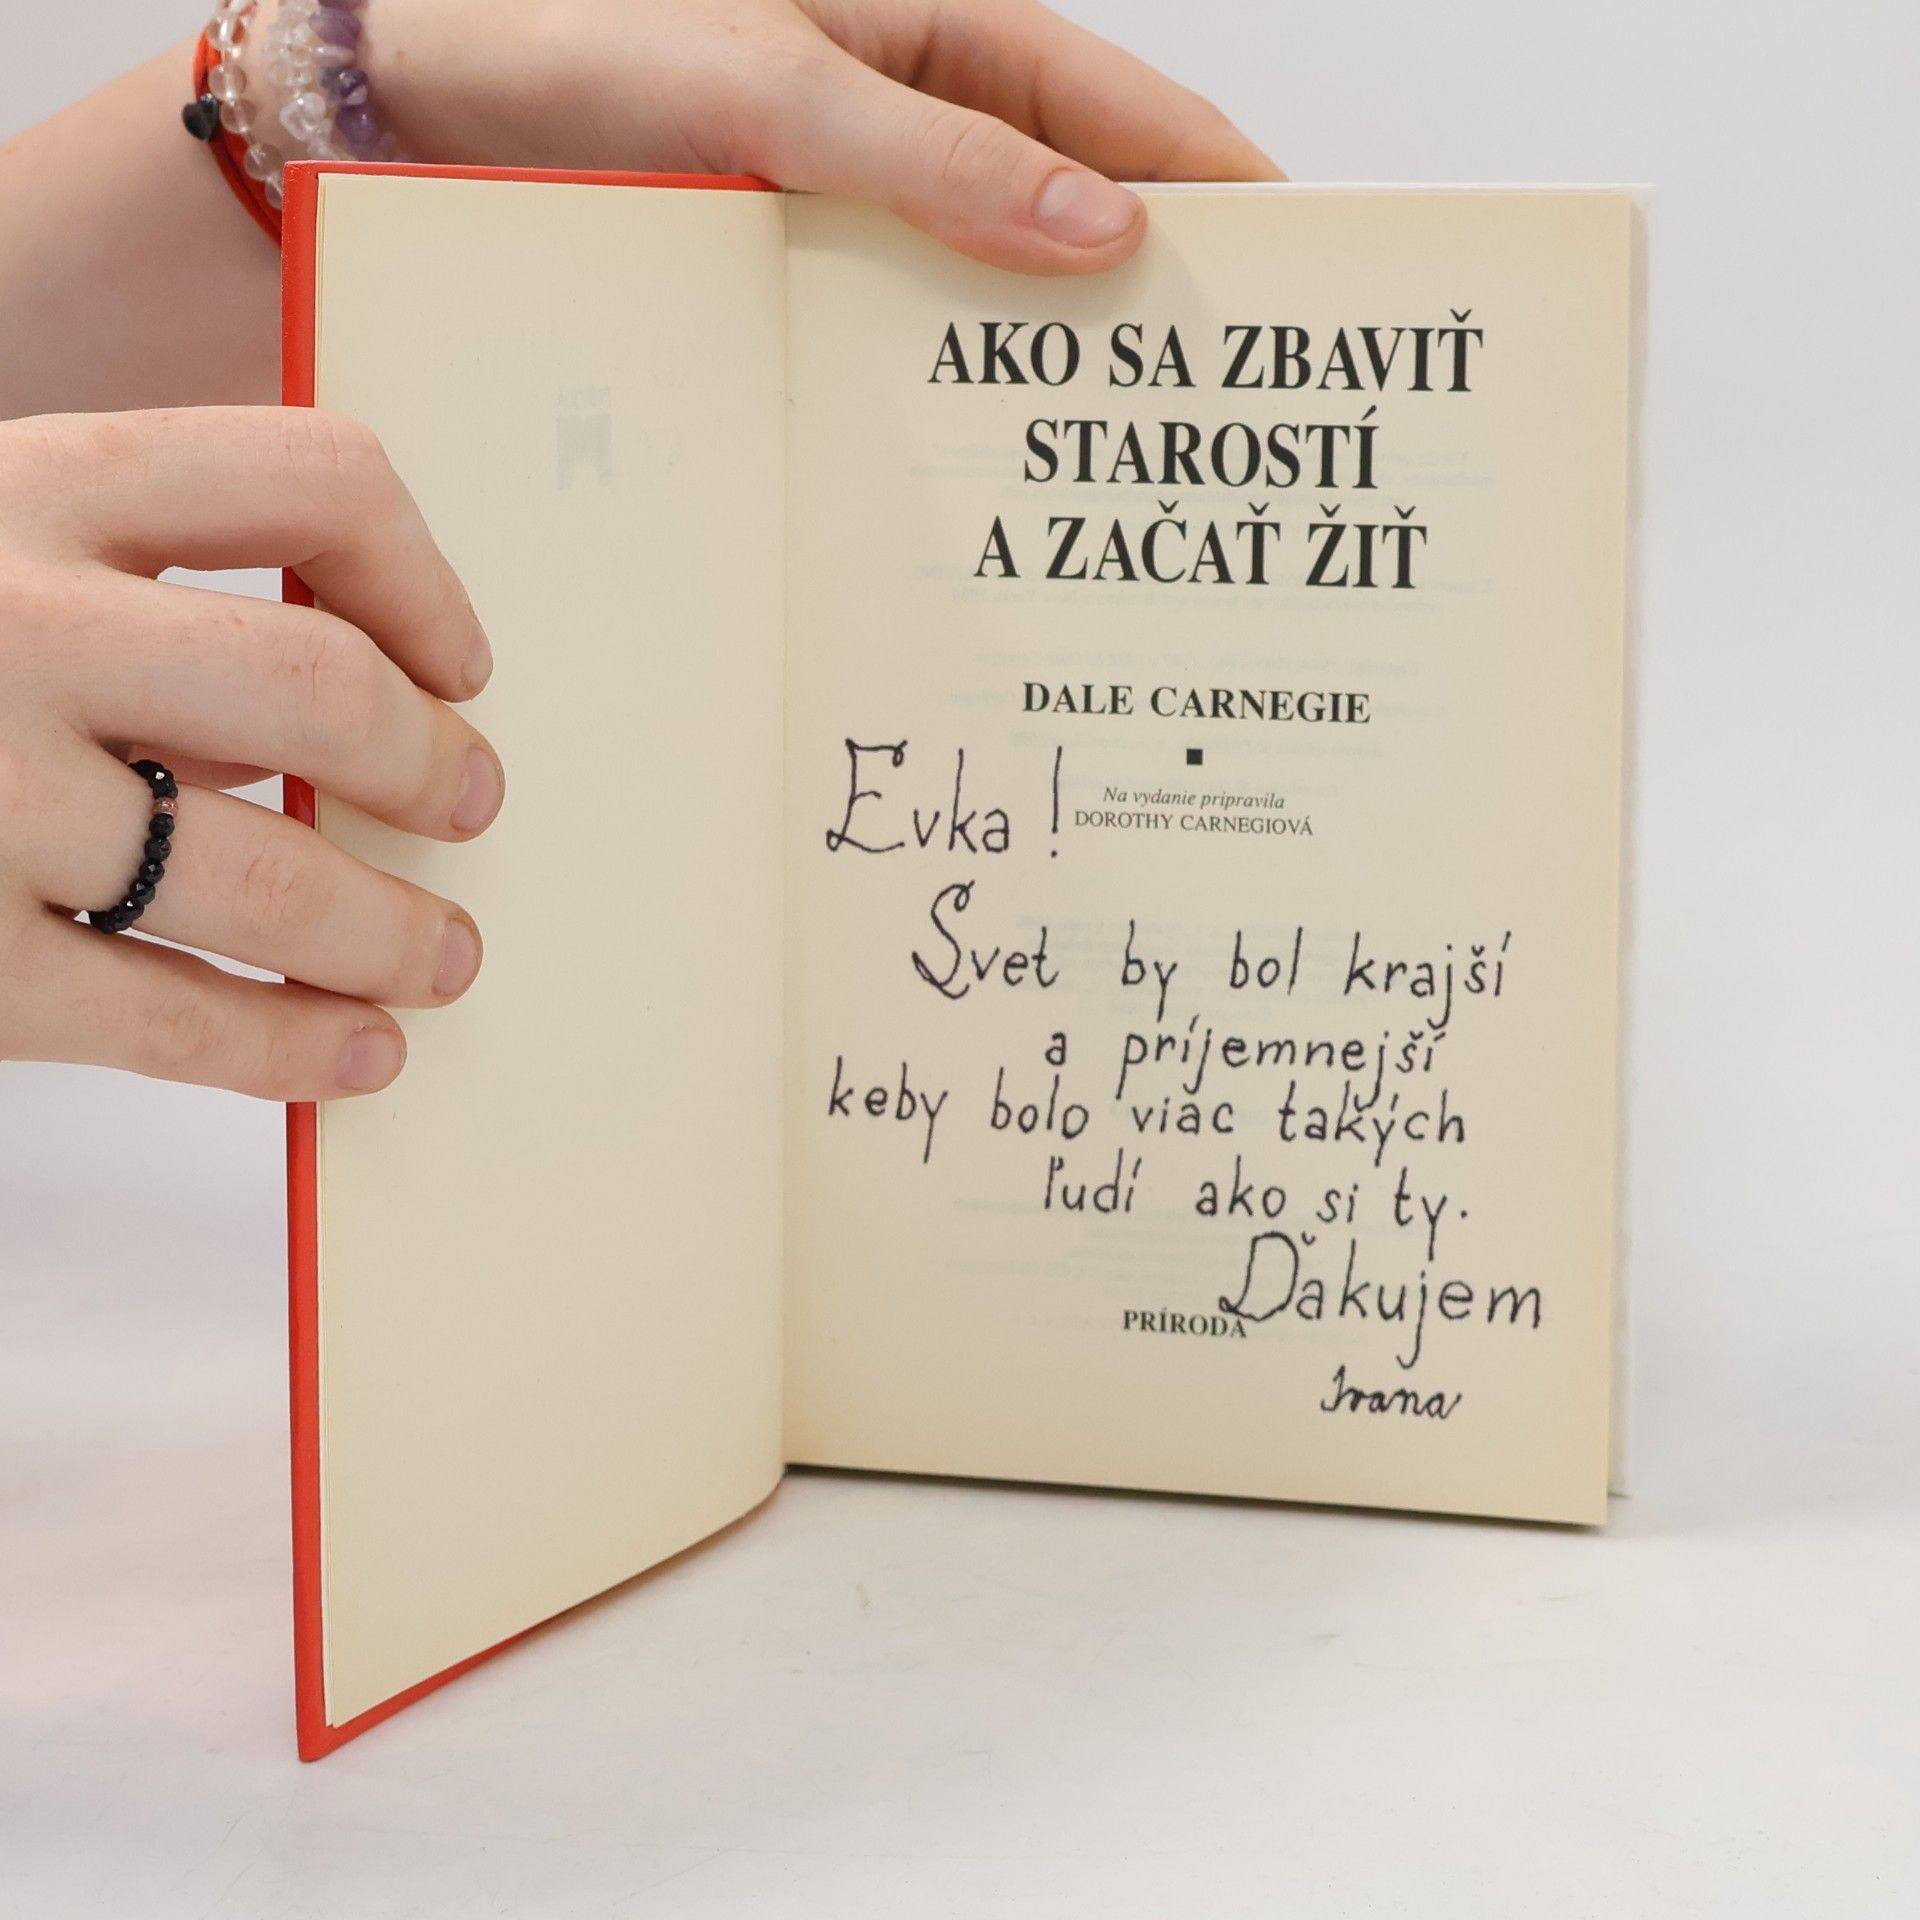 AKO SA ZBAVIŤ
STAROSTÍ
A ZAČAŤ ŽIŤ
DALE CARNEGIE
Na vydanie pripravila
DOROTHY CARNEGIOVÁ
Evka !
Svet by bol krajší
a príjemnejší
keby bolo viac takých
ľudí ako si ty.
Ďakujem
PRÍRODA
Ivana